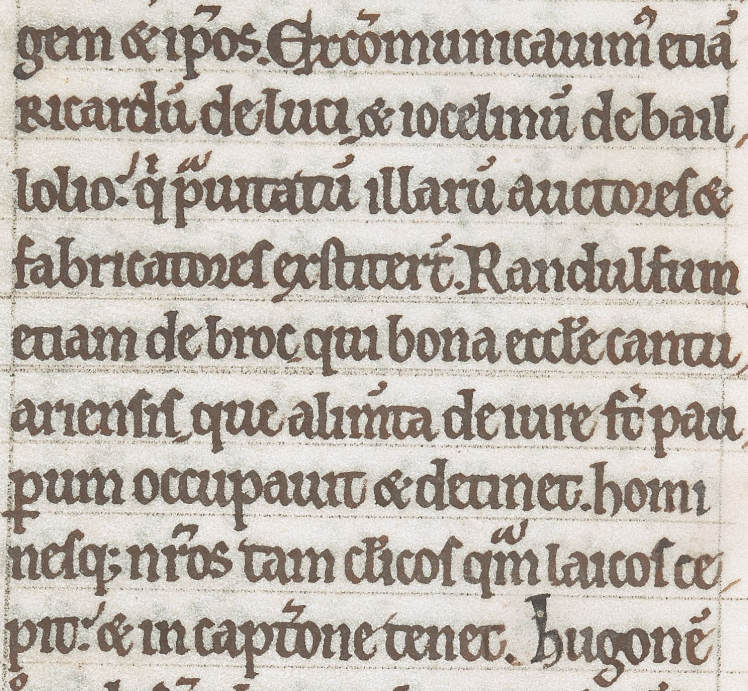 gem & ip̄os. Excōmunicauim᷒ etiā
Ricardū de luci, & iocelinū de bail
lolio. q̇ p̄uitatū illarū auctores &
fabricatores exstiterт̄. Randulfum
etiam de broc qui bona eccl̄e cantu
ariensis, que alim̄ta de iure st̄ pau
ꝑum occupauit & detinet. homi
nesq; nr̄os tam cl̄icos qͣm laicos ce
pit. & in capt̄one tenet. hugonē